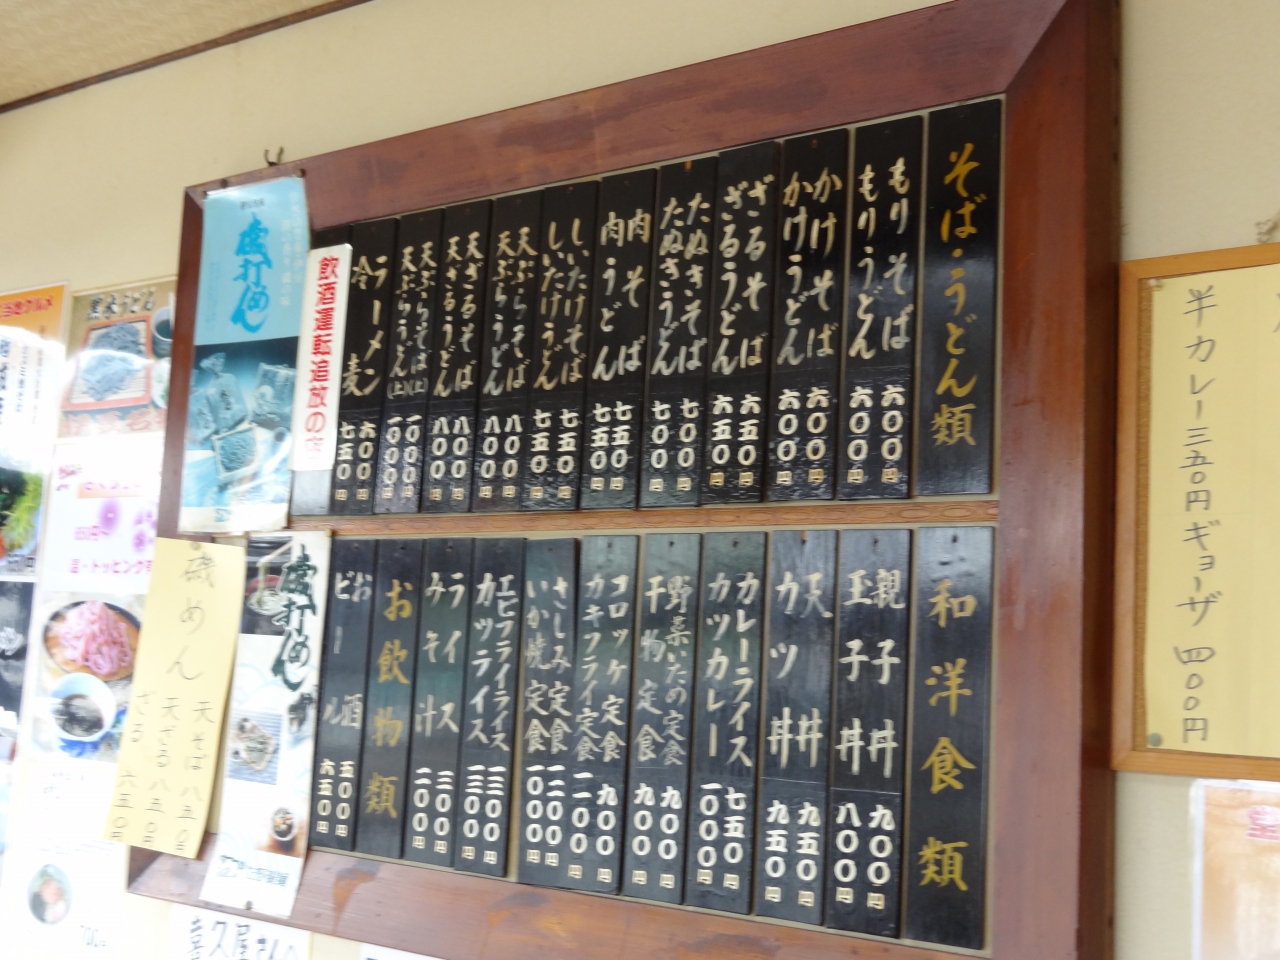 そば・うどん類
もりそば 六〇〇円
もりうどん 六〇〇円
かけそば 六〇〇円
かけうどん 六〇〇円
ざるそば 六五〇円
ざるうどん 六五〇円
たぬきそば 七〇〇円
たぬきうどん 七〇〇円
肉そば 七五〇円
肉うどん 七五〇円
しいたけそば 七五〇円
しいたけうどん 七五〇円
天ぷらそば 八〇〇円
天ぷらうどん 八〇〇円
天ざるそば 八〇〇円
天ざるうどん 八〇〇円
天ぷらそば(上) 一〇〇〇円
天ぷらうどん(上) 一〇〇〇円
ラーメン 六〇〇円
冷麦 七五〇円
飲酒運転追放の店
磯打めん
和洋食類
親子丼 九〇〇円
玉子丼 八〇〇円
天丼 九五〇円
カツ丼 九五〇円
カレーライス 七五〇円
カツカレー 一〇〇〇円
野菜いため定食 九〇〇円
干物定食 九〇〇円
コロッケ定食 九〇〇円
カキフライ定食 一一〇〇円
さしみ定食 一二〇〇円
いか焼定食 一〇〇〇円
エビフライライス 一三〇〇円
カツライス 一三〇〇円
ライス 三〇〇円
みそ汁 二〇〇円
お飲物類
お酒 五〇〇円
ビール 六五〇円
磯打めん
磯めん
天そば 八五〇円
天ざる 八五〇円
ざる 六五〇円
半カレー 三五〇円
ギョーザ 四〇〇円
黒米うどん
喜久屋さんの